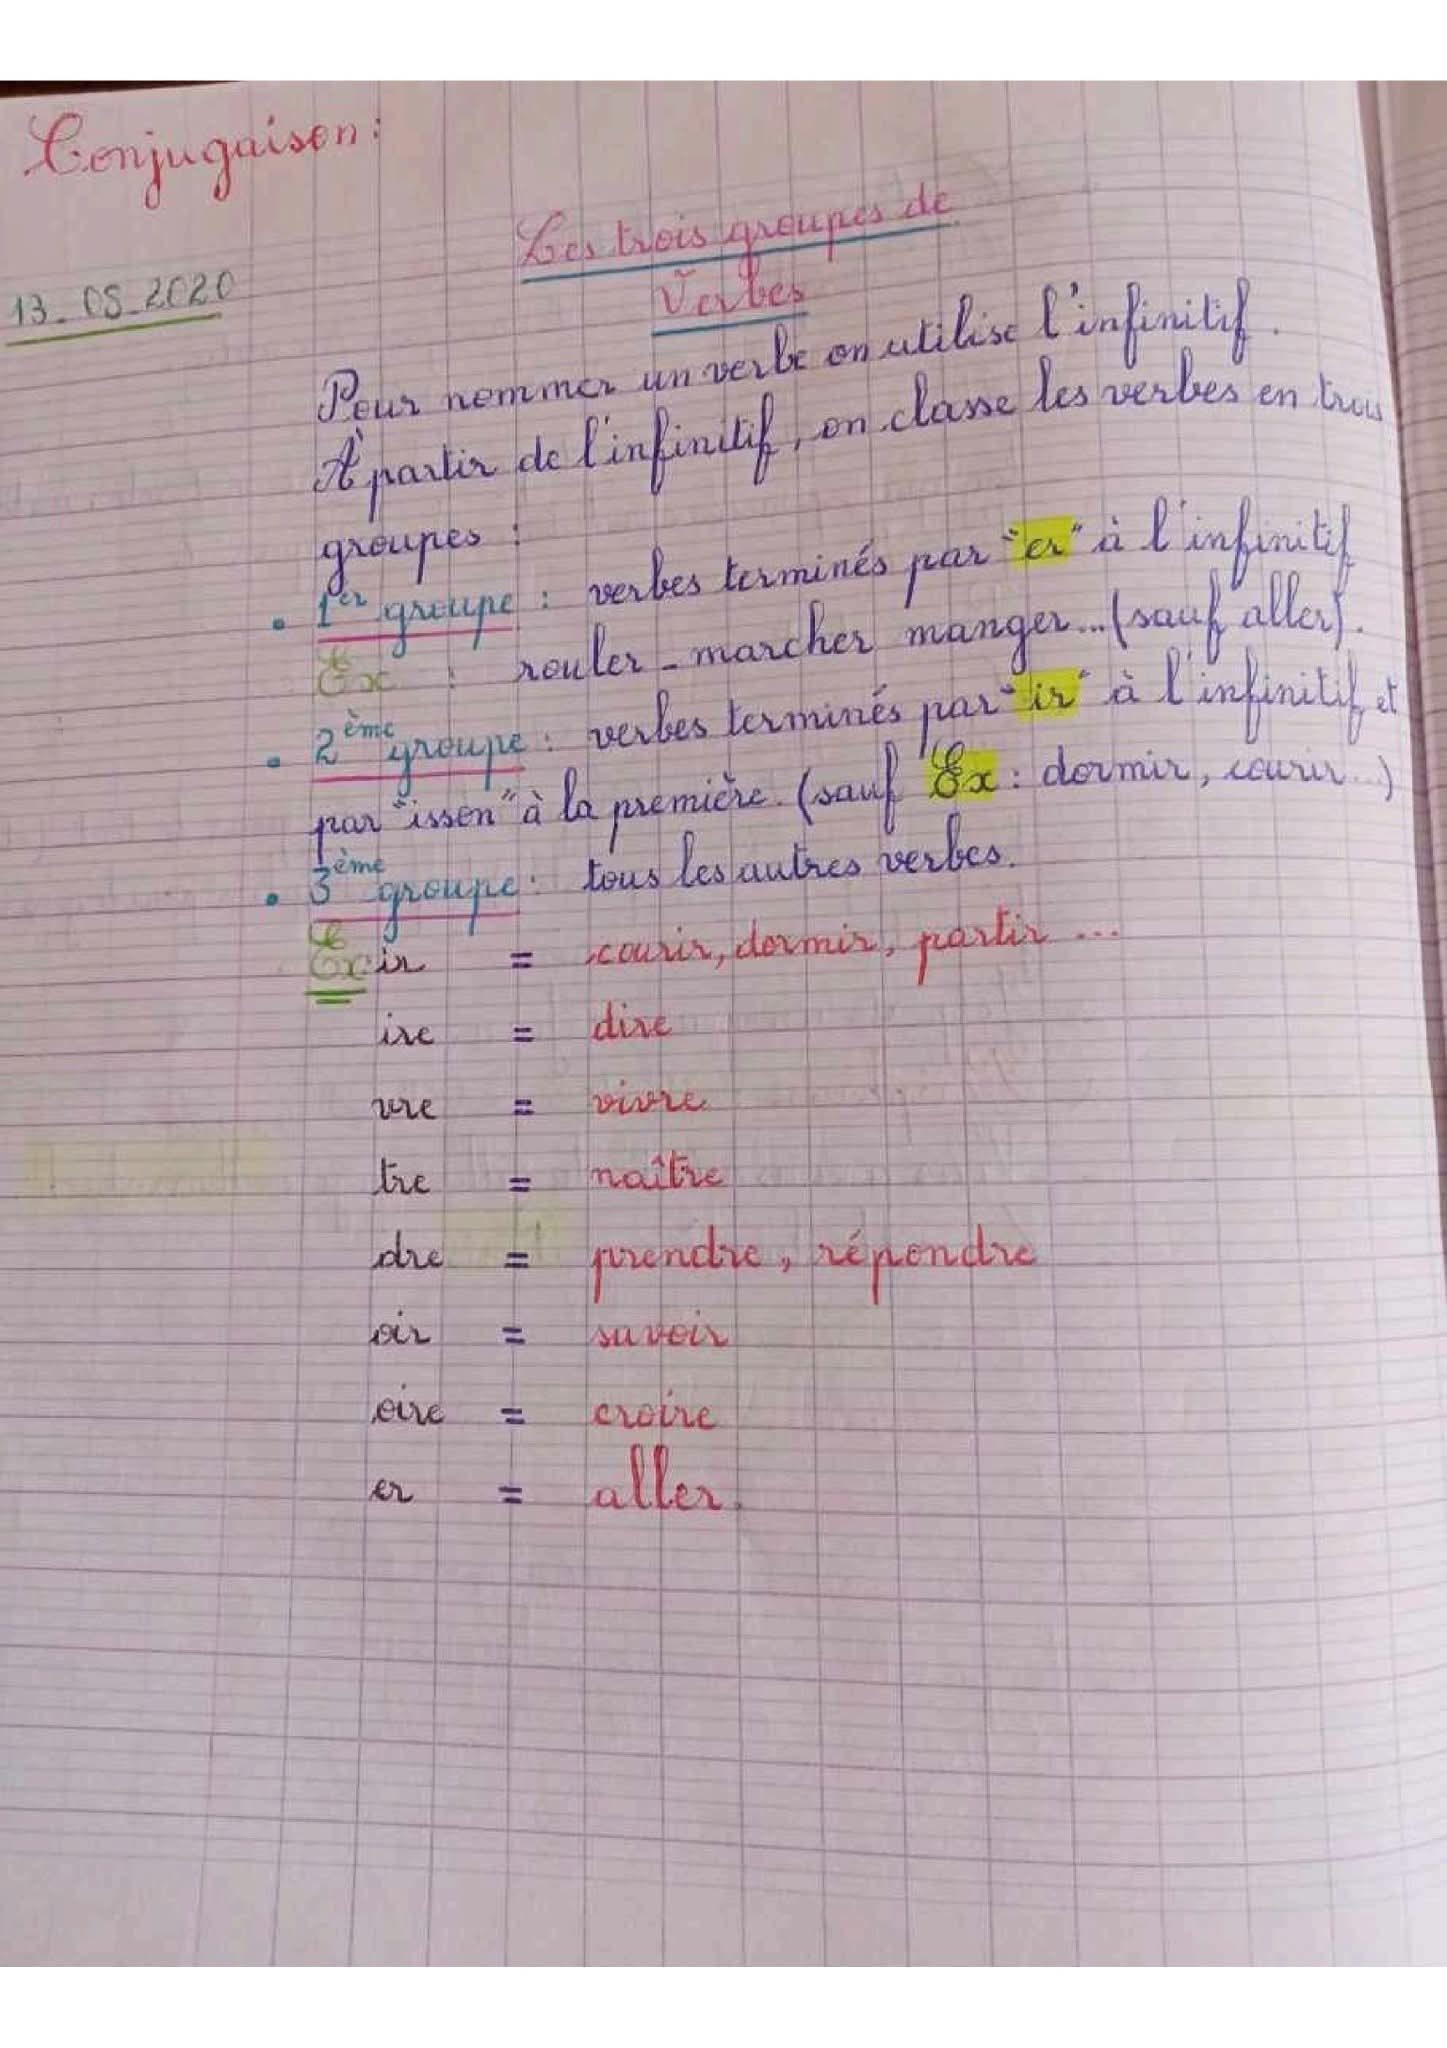 Conjugaison :
Les trois groupes de
Verbes
13_05_2020
Pour nommer un verbe on utilise l'infinitif.
À partir de l'infinitif, on classe les verbes en trois
groupes :
• 1er groupe : verbes terminés par "er" à l'infinitif
Ex : rouler - marcher manger... (sauf aller).
• 2ème groupe : verbes terminés par "ir" à l'infinitif et
par "isson" à la première. (sauf Ex : dormir, courir...)
• 3ème groupe : tous les autres verbes.
Ex ir = courir, dormir, partir ...
ire = dire
vre = vivre
tre = naître
dre = prendre, répondre
oir = savoir
oire = croire
er = aller.